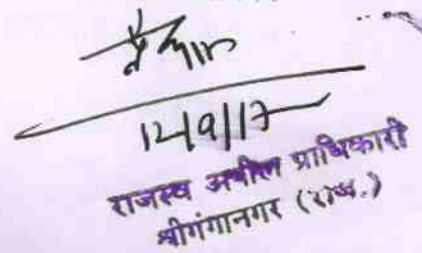 12/9/17
राजस्व अपील प्राधिकारी
श्रीगंगानगर (राज.)